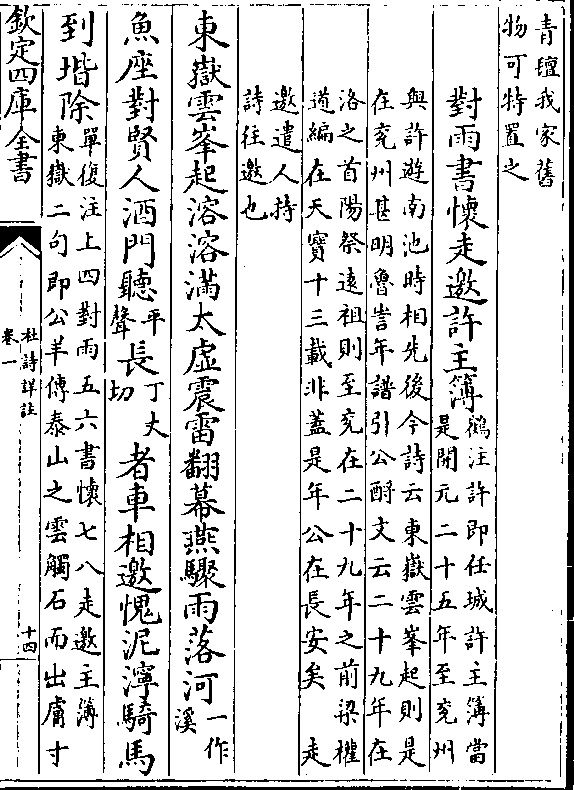 青氊我家舊
物可特置之
對雨書懷走邀許主簿
鶴注許即任城許主簿當
是開元二十五年至兖州
與許遊南池時相先後今詩云東嶽雲峯起則是
在兖州甚明魯訔年譜引公酹文云二十九年在
洛之首陽祭遠祖則至兖在二十九年之前梁權
道編在天寶十三載非蓋是年公在長安矣 走
邀遣人持
詩往邀也
東嶽雲峯起溶溶滿太虛震雷翻幕燕驟雨落河
一作
溪
魚座對賢人酒門聽
平
聲
長
丁丈
切
者車相邀愧泥濘騎馬
到堦除
單復注上四對雨五六書懷七八走邀主簿
東嶽二句即公羊傳泰山之雲觸石而出膚寸
欽定四庫全書
杜詩詳註
卷一
十四